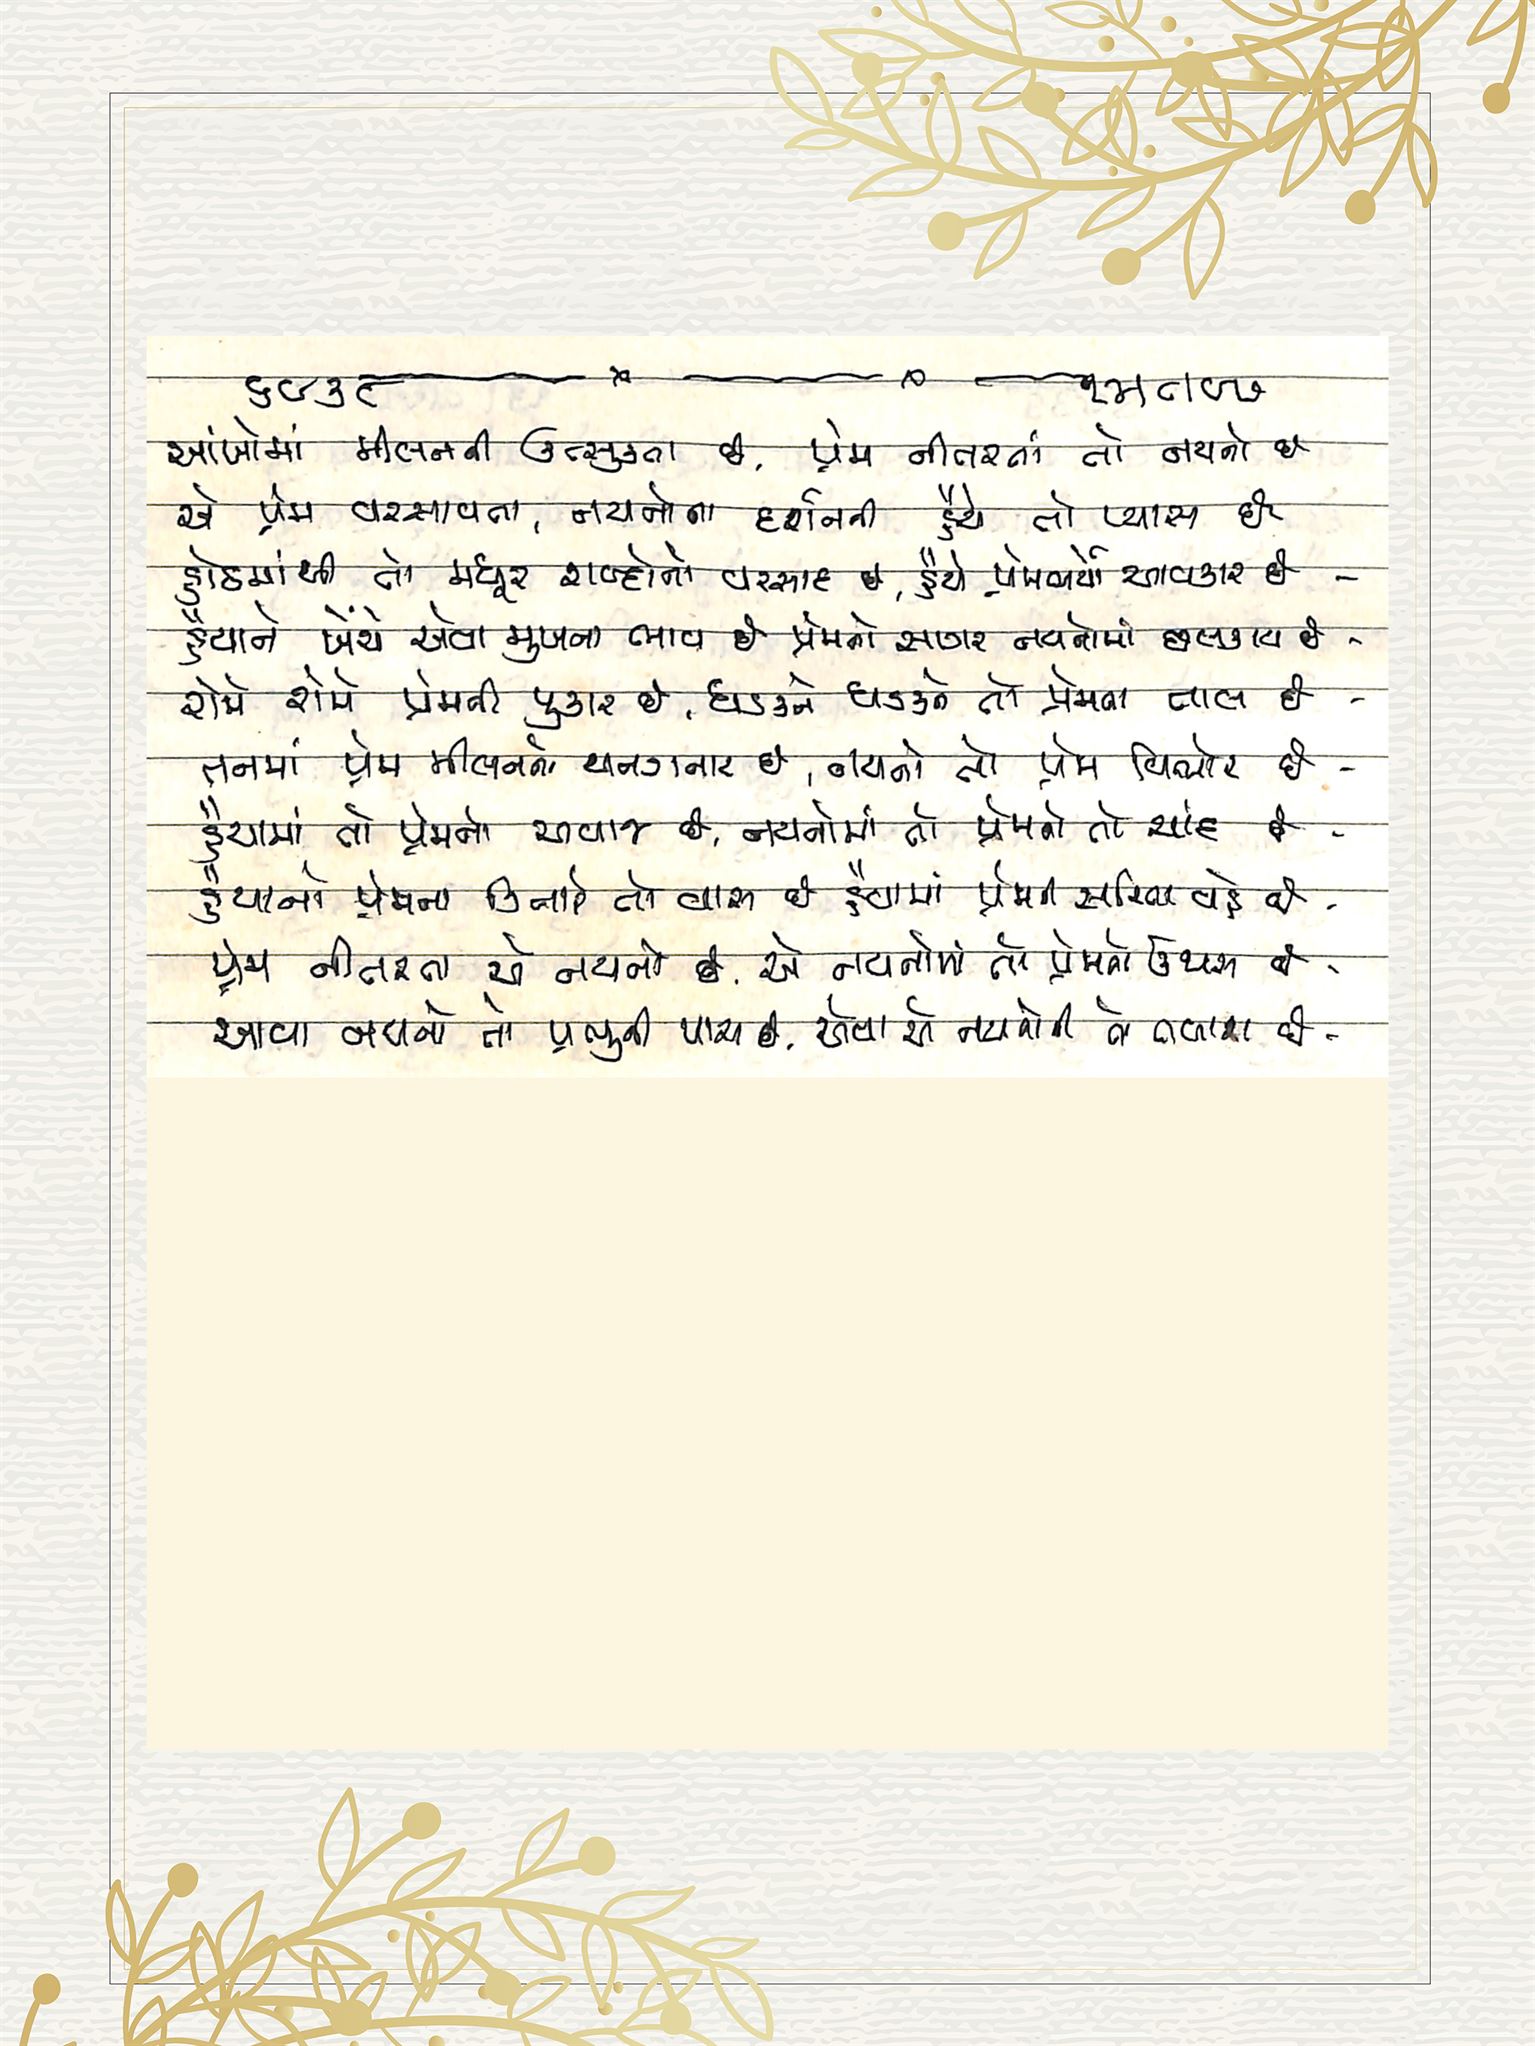 આંખોમાં મીલનની ઉત્સુકતા છે, પ્રેમ નીતરતાં તો નયનો છે
એ પ્રેમ વરસાવતા, નયનોના દર્શનની હૈયે તો પ્યાસ છે
હોઠમાંથી તો મધૂર શબ્દોનો વરસાદ છે, હૈયે પ્રેમભર્યો આવકાર છે -
હૈયાને ખેંચે એવા મુખના ભાવ છે પ્રેમનો સાગર નયનોમાં છલકાય છે -
રોમે રોમે પ્રેમની પુકાર છે, ધડકને ધડકને તો પ્રેમના તાલ છે -
તનમાં પ્રેમ મીલનનો થનગનાર છે, નયનો તો પ્રેમ વિભોર છે -
હૈયામાં તો પ્રેમનો અવાજ છે, નયનોમાં તો પ્રેમનો તો સાદ છે -
હૈયાનો પ્રેમના કિનારે તો વાસ છે હૈયામાં પ્રેમની સરિતા વહે છે -
પ્રેમ નીતરતા એ નયનો છે, એ નયનોમાં તો પ્રેમનો છે -
આવા નયનો તો પ્રભુની પાસ છે, એવા એ નયનોની તો તલાશ છે -